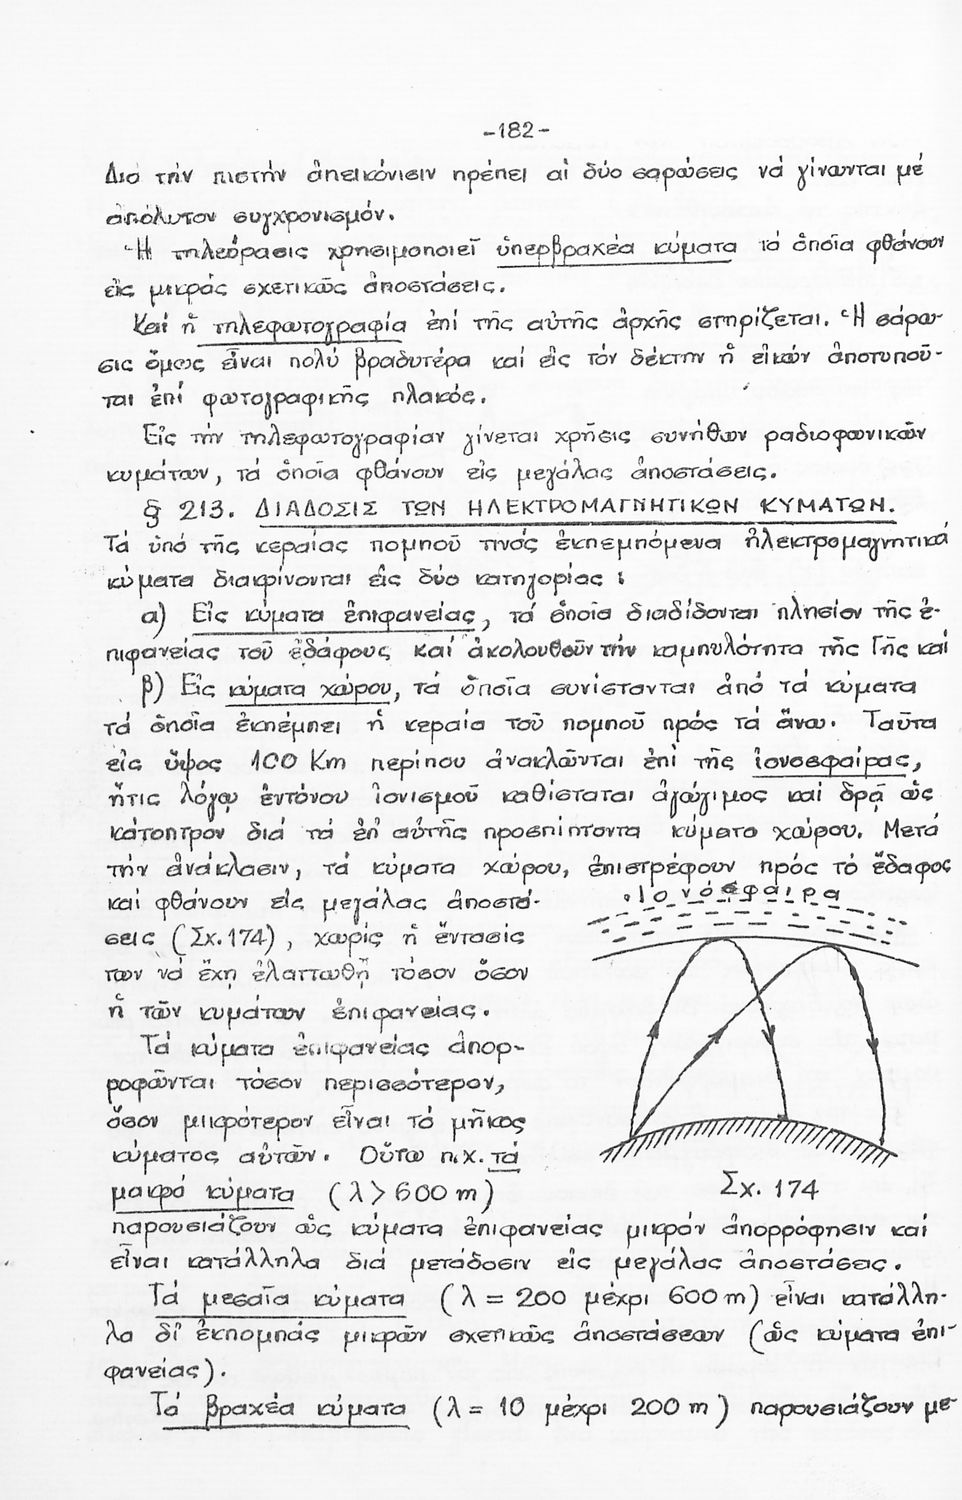 -182-
Διά τήν πιστήν ἀπεικόνισιν πρέπει αἱ δύο σαρώσεις νά γίνωνται μέ
ἀπόλυτον συγχρονισμόν.
Ἡ τηλεόρασις χρησιμοποιεῖ ὑπερβραχέα κύματα τά ὁποῖα φθάνουν
εἰς μικράς σχετικῶς ἀποστάσεις.
Καί ἡ τηλεφωτογραφία ἐπί τῆς αὐτῆς ἀρχῆς στηρίζεται. Ἡ σάρω-
σις ὅμως εἶναι πολύ βραδυτέρα καί εἰς τόν δέκτην ἡ εἰκών ἀποτυποῦ-
ται ἐπί φωτογραφικῆς πλακός.
Εἰς τήν τηλεφωτογραφίαν γίνεται χρῆσις συνήθων ραδιοφωνικῶν
κυμάτων, τά ὁποῖα φθάνουν εἰς μεγάλας ἀποστάσεις.
§ 213. ΔΙΑΔΟΣΙΣ ΤΩΝ ΗΛΕΚΤΡΟΜΑΓΝΗΤΙΚΩΝ ΚΥΜΑΤΩΝ.
Τά ὑπό τῆς κεραίας πομποῦ τινός ἐκπεμπόμενα ἠλεκτρομαγνητικά
κύματα διακρίνονται εἰς δύο κατηγορίας :
α) Εἰς κύματα ἐπιφανείας, τά ὁποῖα διαδίδονται πλησίον τῆς ἐ-
πιφανείας τοῦ ἐδάφους καί ἀκολουθοῦν τήν καμπυλότητα τῆς Γῆς καί
β) Εἰς κύματα χώρου, τά ὁποῖα συνίστανται ἀπό τά κύματα
τά ὁποῖα ἐκπέμπει ἡ κεραία τοῦ πομποῦ πρός τά ἄνω. Ταῦτα
εἰς ὕψος 100 Km περίπου ἀνακλῶνται ἐπί τῆς ἰονοσφαίρας,
ἥτις λόγῳ ἐντόνου ἰονισμοῦ καθίσταται ἀγώγιμος καί δρᾷ ὡς
κάτοπτρον διά τά ἐπ' αὐτῆς προσπίπτοντα κύματα χώρου. Μετά
τήν ἀνάκλασιν, τά κύματα χώρου, ἐπιστρέφουν πρός τό ἔδαφος
καί φθάνουν εἰς μεγάλας ἀποστά-
σεις (Σχ. 174), χωρίς ἡ ἔντασίς
των νά ἔχῃ ἐλαττωθῆ τόσον ὅσον
ἡ τῶν κυμάτων ἐπιφανείας.
Τά κύματα ἐπιφανείας ἀπορ-
ροφῶνται τόσον περισσότερον,
ὅσον μικρότερον εἶναι τό μῆκος
κύματος αὐτῶν. Οὕτω π.χ. τά
μακρά κύματα (λ > 600 m)
Ἰονόσφαιρα
Σχ. 174
παρουσιάζουν ὡς κύματα ἐπιφανείας μικράν ἀπορρόφησιν καί
εἶναι κατάλληλα διά μετάδοσιν εἰς μεγάλας ἀποστάσεις.
Τά μεσαῖα κύματα (λ = 200 μέχρι 600 m) εἶναι κατάλλη-
λα δι' ἐκπομπάς μικρῶν σχετικῶς ἀποστάσεων (ὡς κύματα ἐπι-
φανείας).
Τά βραχέα κύματα (λ = 10 μέχρι 200 m) παρουσιάζουν με-